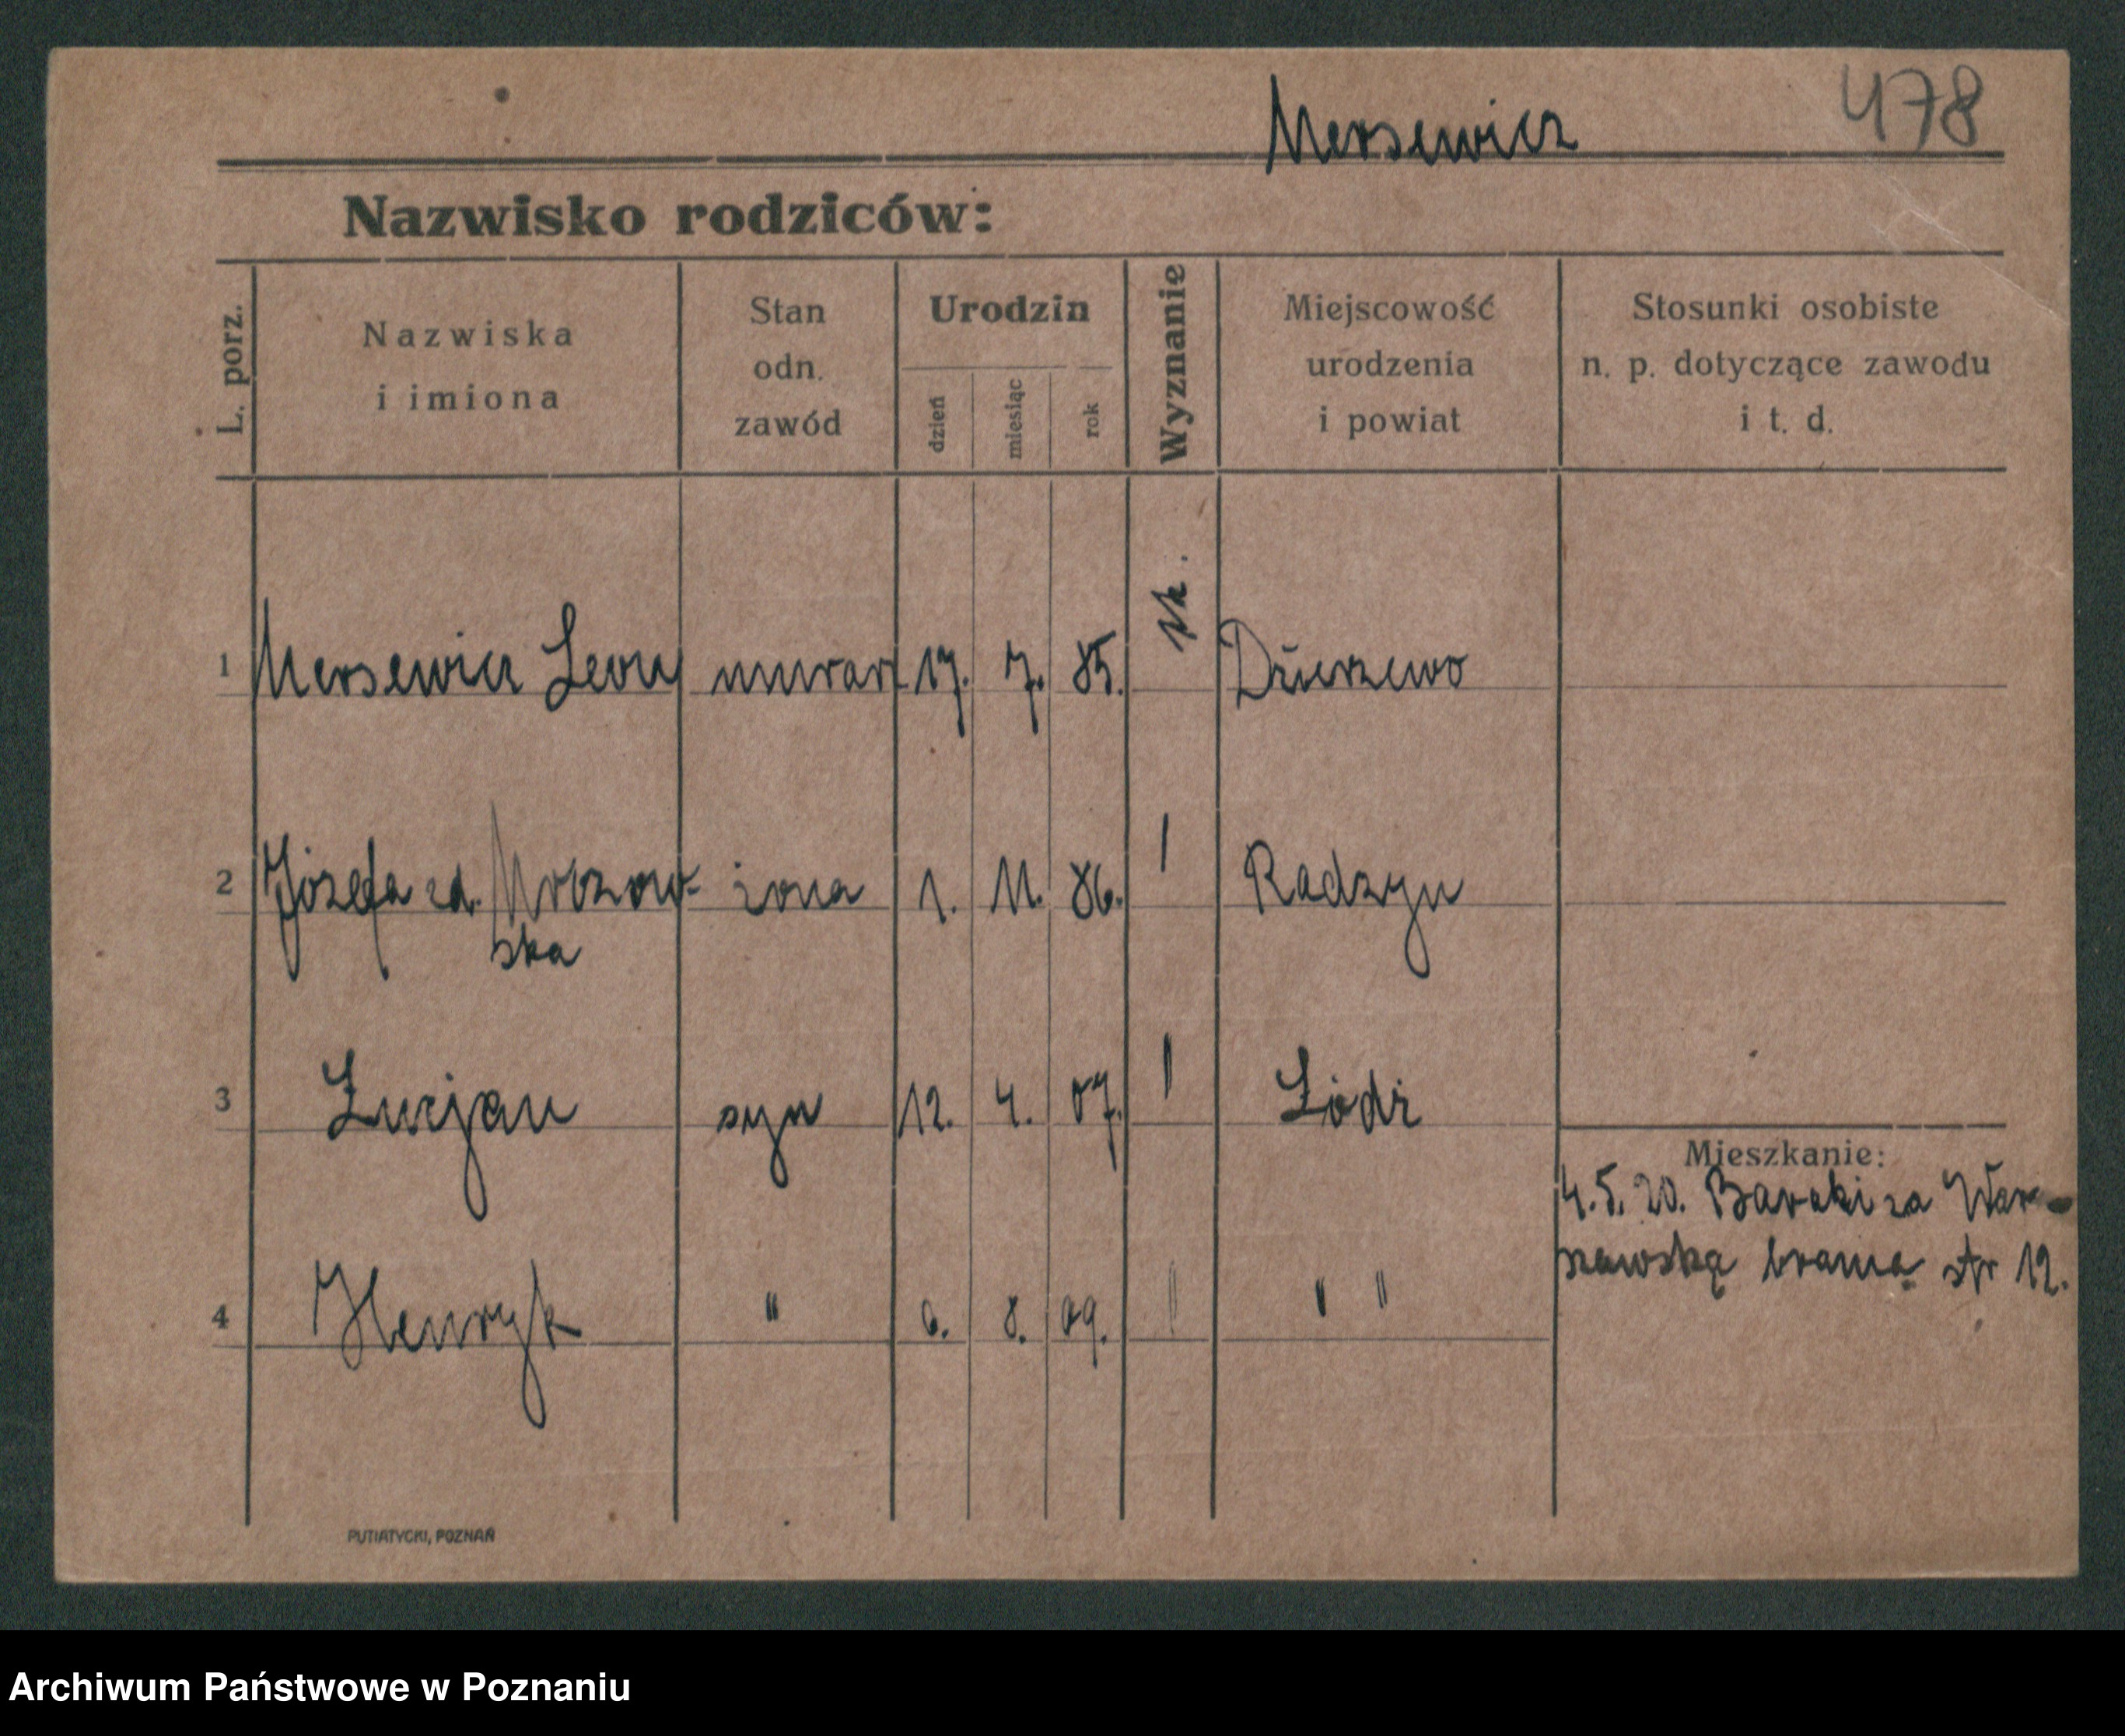 Mersewicz 478
Nazwisko rodziców:
L. porz.
Nazwiska
i imiona
Stan
odn.
zawód
Urodzin
dzień
miesiąc
rok
Wyznanie
Miejscowość
urodzenia
i powiat
Stosunki osobiste
n. p. dotyczące zawodu
i t. d.
1 Mersewicz Leon murarz 17. 7. 85. rk. Dźwierzewo
2 Józefa zd. Mrozow- żona 1. 11. 86. Radzyn
ska
3 Lucjan syn 12. 4. 07. Łódź
4 Henryk " 6. 8. 09. " "
Mieszkanie:
4.5.20. Baraki za War-
szawską bramą Nr 12.
PUTIATYCKI, POZNAŃ
Archiwum Państwowe w Poznaniu